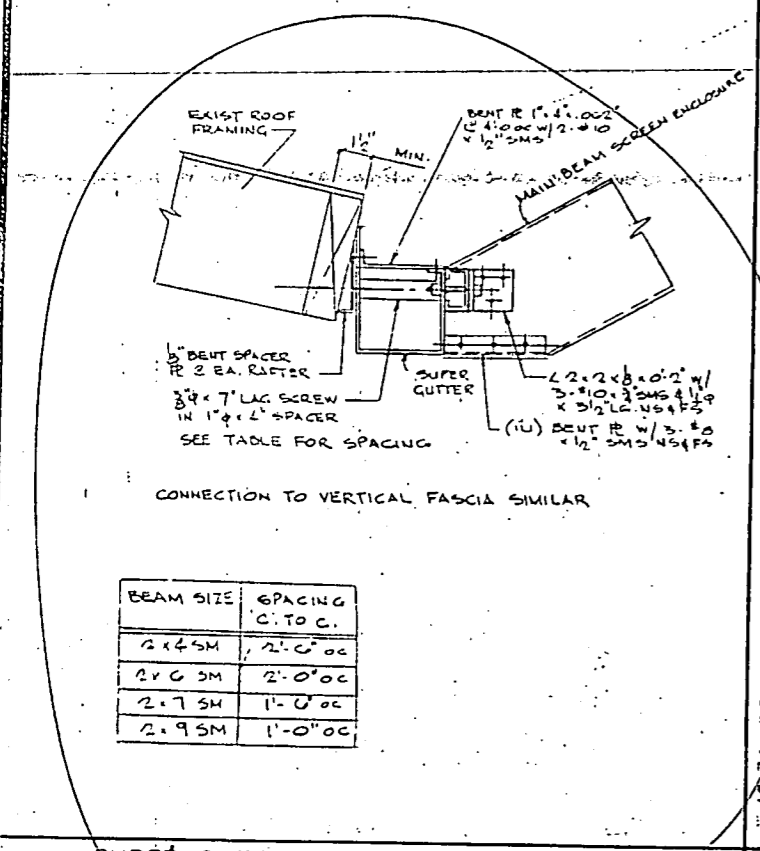 EXIST ROOF
FRAMING
1½"
MIN.
BENT PL 1" x 4" x .062"
@ 4'-0 OC W/ 2-#10
x ½" SMS
MAIN BEAM SCREEN ENCLOSURE
⅛" BENT SPACER
PL @ EA. RAFTER
⅜"φ x 7" LAG SCREW
IN 1"φ x SPACER
SEE TABLE FOR SPACING
SUPER
GUTTER
L 2 x 2 x ⅛ x 0'-2" W/
3-#10 x SMS &
x 3½" LG. NS & FS
BENT PL W/ 3-#8
x ½" SMS NS & FS
CONNECTION TO VERTICAL FASCIA SIMILAR
BEAM SIZE SPACING
C. TO C.
2 x 4 SM 2'-6" OC
2 x 6 SM 2'-0" OC
2 x 7 SM 1'-6" OC
2 x 9 SM 1'-0" OC